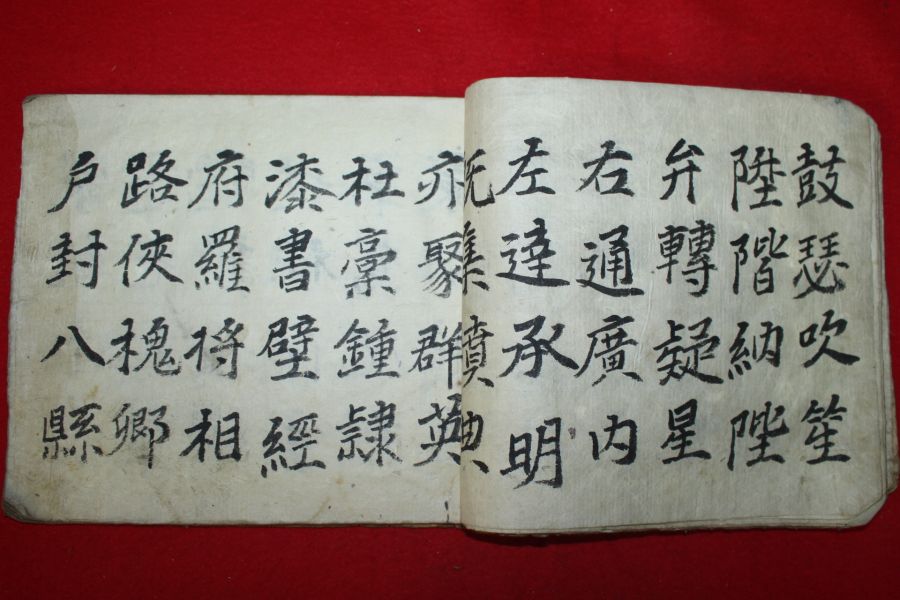 鼓瑟吹笙
陞階納陛
弁轉疑星
右通廣内
左達承明
既集墳典
亦聚群英
杜稾鍾隷
漆書壁經
府羅将相
路俠槐卿
戶封八縣